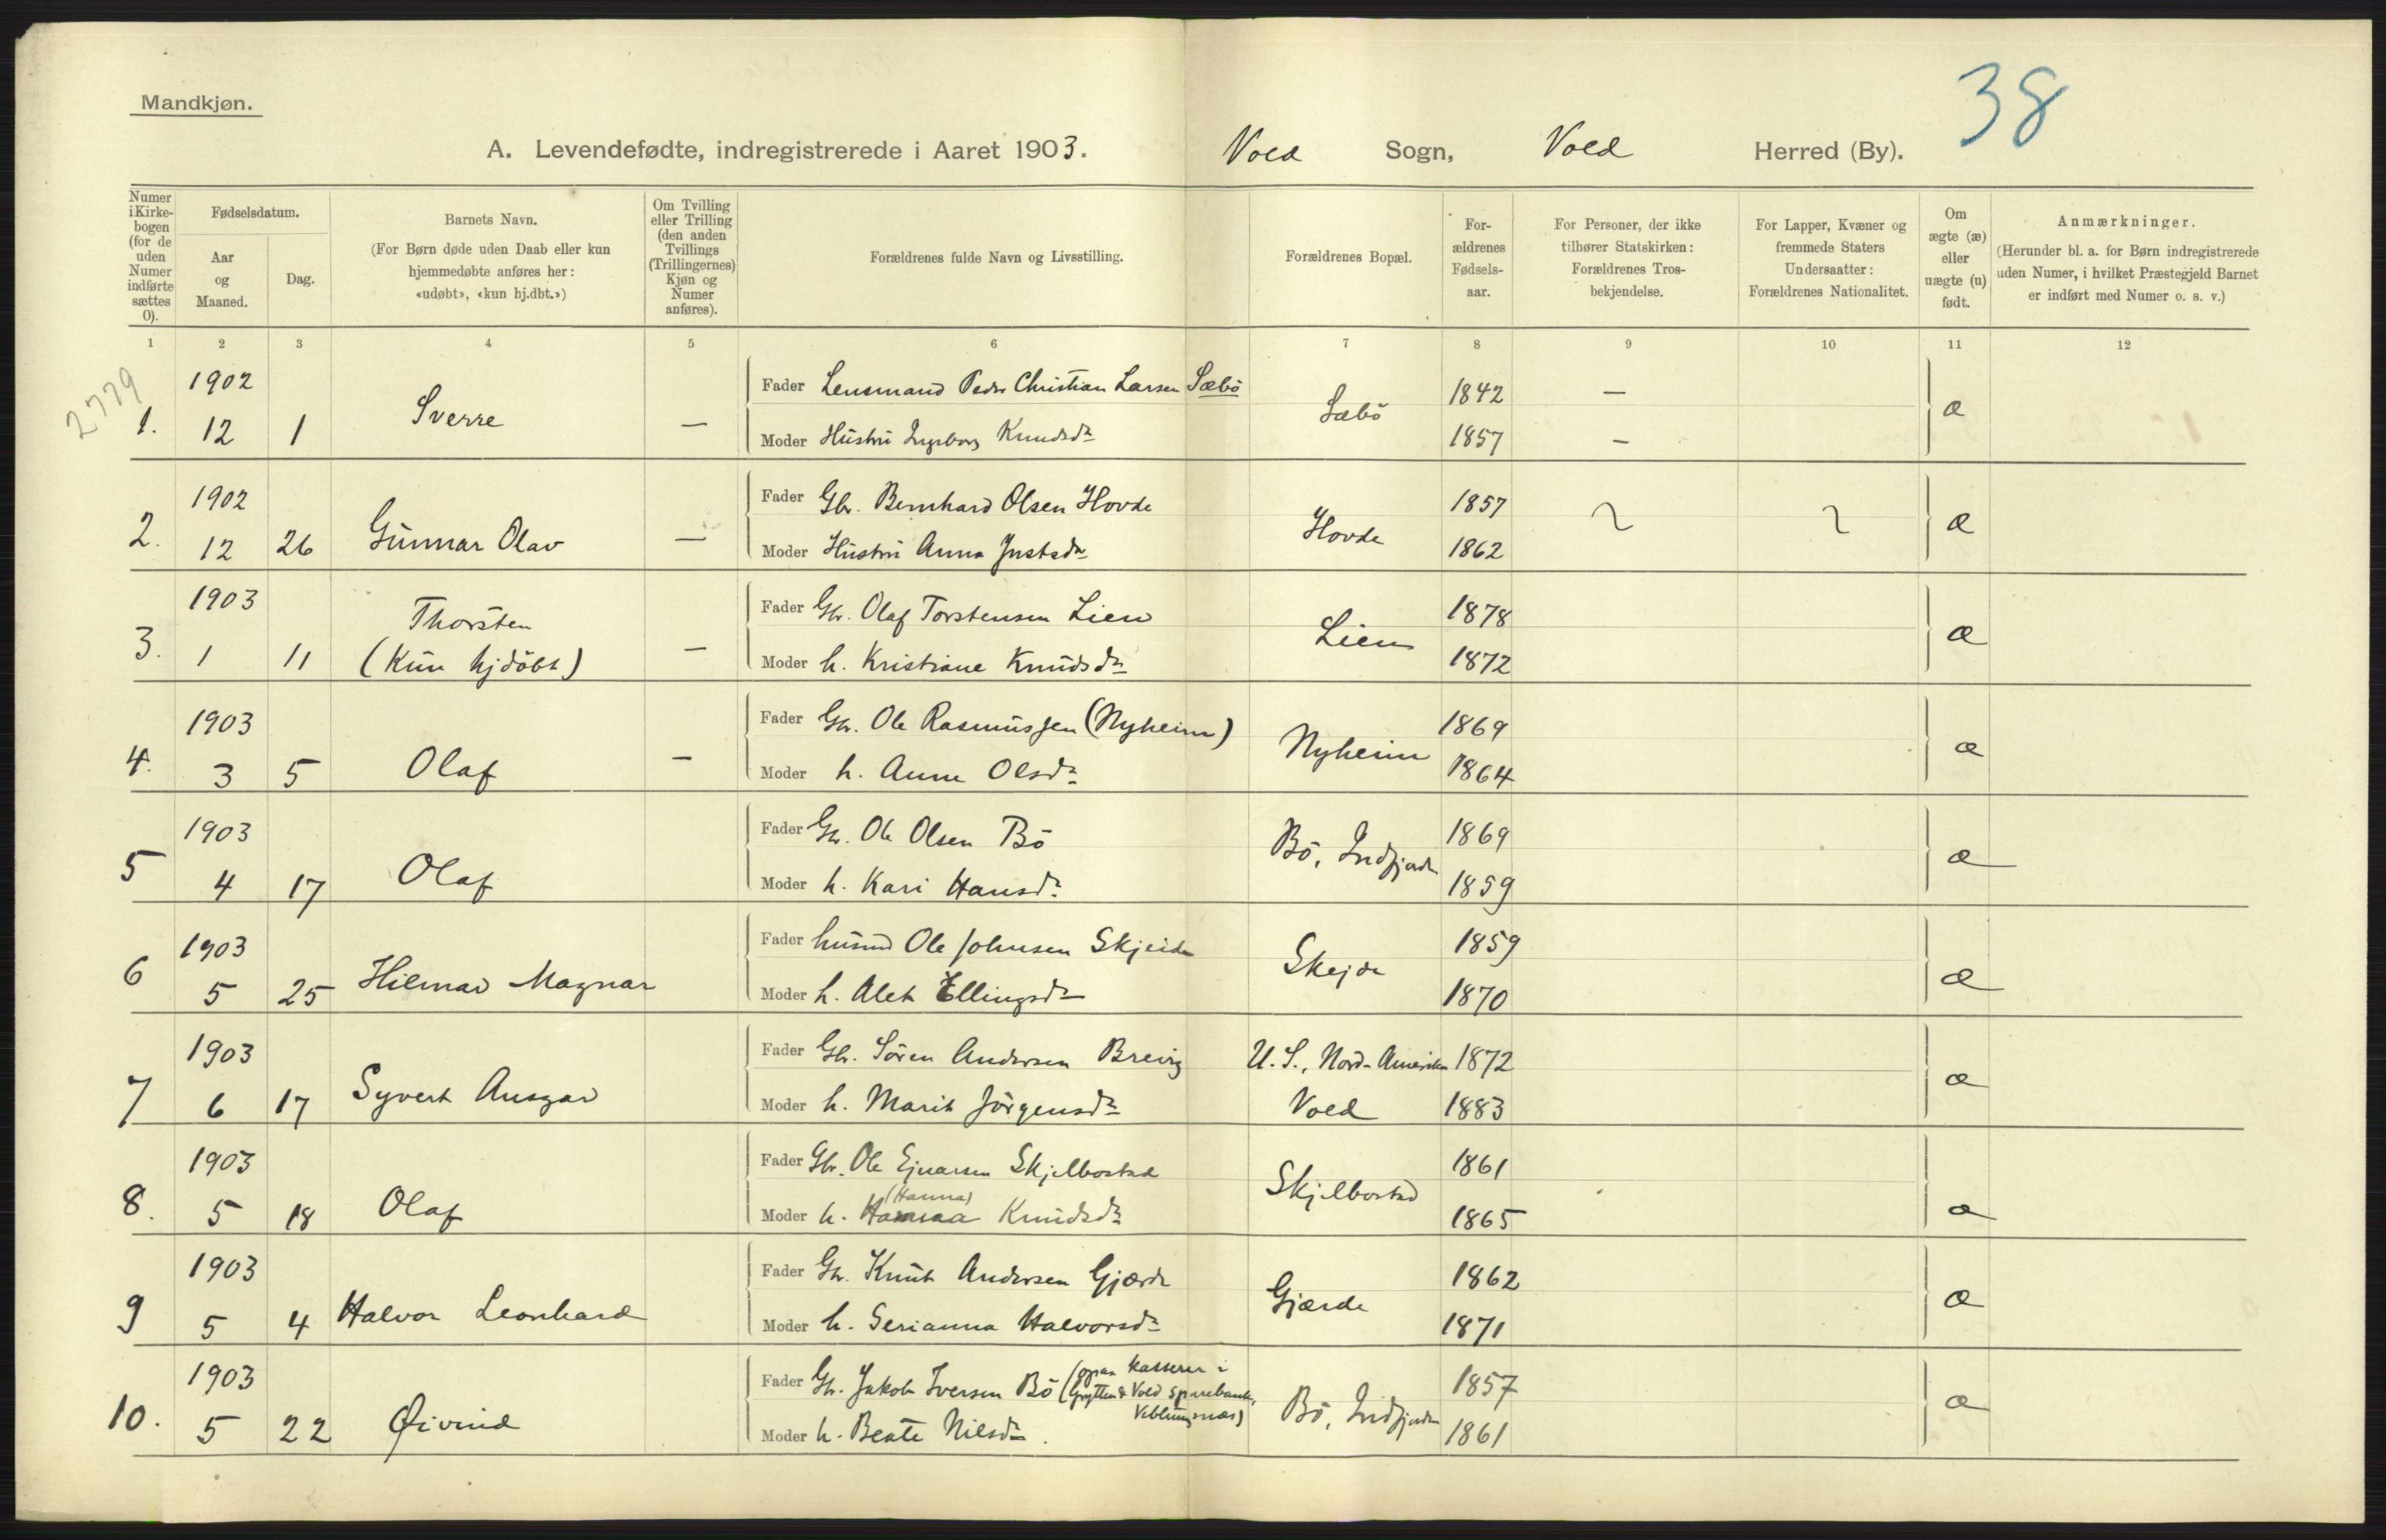 38
Mandkjøn.
A. Levendefødte, indregistrerede i Aaret 1903. Vold Sogn, Vold Herred (By).
Numer i Kirkebogen (for de uden Numer indførte sættes 0).
Fødselsdatum.
Aar og Maaned.
Dag.
Barnets Navn.
(For Børn døde uden Daab eller kun hjemmedøbte anføres her: «udøbt», «kun hj.dbt.»)
Om Tvilling eller Trilling (den anden Tvillings (Trillingernes) Kjøn og Numer anføres).
Forældrenes fulde Navn og Livsstilling.
Forældrenes Bopæl.
For-ældrenes Fødsels-aar.
For Personer, der ikke tilhører Statskirken: Forældrenes Tros-bekjendelse.
For Lapper, Kvæner og fremmede Staters Undersaatter: Forældrenes Nationalitet.
Om ægte (æ) eller uægte (u) født.
Anmærkninger.
(Herunder bl. a. for Børn indregistrerede uden Numer, i hvilket Præstegjeld Barnet er indført med Numer o. s. v.)
1 2 3 4 5 6 7 8 9 10 11 12
2779
1902 Fader Lensmand Peder Christian Larsen Sæbö 1842 —
1. 12 1 Sverre — Sæbö æ
Moder Hustru Ingeborg Knudsdr 1857 —
1902 Fader Gbr. Bernhard Olsen Hovde 1857
2. 12 26 Gunnar Olav — Hovde æ
Moder Hustru Anna Justsdr 1862
1903 Fader Gbr. Olaf Torstensen Lien 1878
3. 1 11 Thorsten — Lien æ
(Kun hjdöbt) Moder h. Kristiane Knudsdr 1872
1903 Fader Gbr. Ole Rasmussen (Nyheim) 1869
4. 3 5 Olaf — Nyheim æ
Moder h. Anne Olsdr 1864
1903 Fader Gbr. Ole Olsen Bö 1869
5 4 17 Olaf Bö, Indfjorden æ
Moder h. Kari Hansdr 1859
1903 Fader husmd Ole Johnsen Skjeide 1859
6 5 25 Hilmar Magnar Skejde æ
Moder h. Alet Ellingsdr 1870
1903 Fader Gbr. Sören Andersen Breivig U. S., Nord-Amerika 1872
7 6 17 Syvert Ansgar æ
Moder h. Marit Jörgensdr Vold 1883
1903 Fader Gbr. Ole Ejnarsen Skjelbostad 1861
8. 5 18 Olaf Skjelbostad æ
(Hanna)
Moder h. Knudsdr 1865
1903 Fader Gbr. Knut Andersen Gjærde 1862
9 5 4 Halvor Leonhard Gjærde æ
Moder h. Serianna Halvorsdr 1871
1903 Fader Gbr. Jakob Iversen Bö (ogsaa kasserer i Grytten & Vold sparebank, Veblungsnæs) 1857
10. 5 22 Øivind Bö, Indfjorden æ
Moder h. Beate Nilsdr. 1861